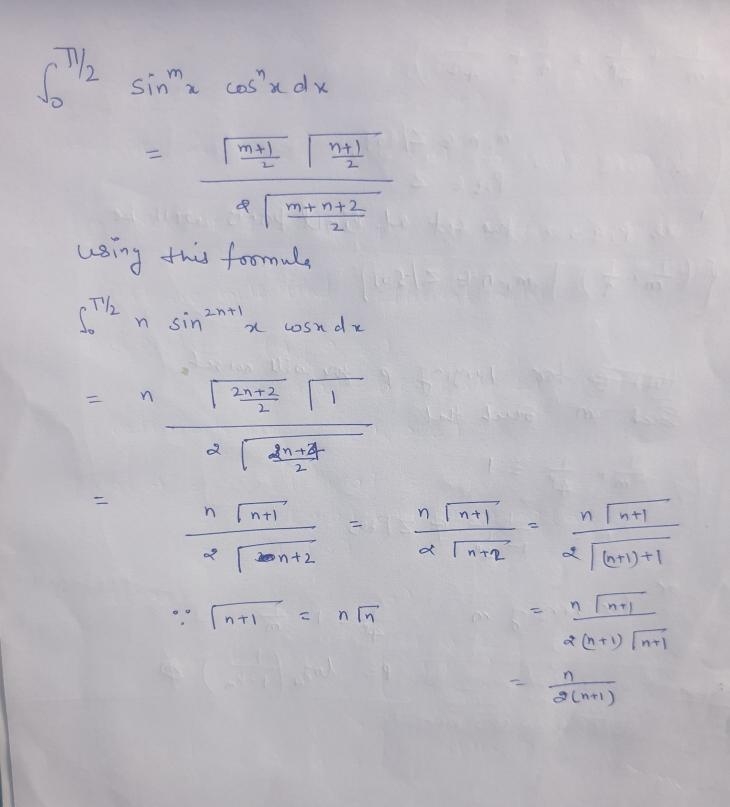 ∫₀^π/2 sin^m x cos^n x dx
= Γ(m+1)/2 Γ(n+1)/2 / 2 Γ(m+n+2)/2
using this formula
∫₀^π/2 n sin^2n+1 x cosx dx
= n Γ(2n+2)/2 Γ1 / 2 Γ(2n+4)/2
= n Γn+1 / 2 Γn+2 = n Γn+1 / 2 Γn+2 = n Γn+1 / 2 Γ(n+1)+1
∵ Γn+1 = nΓn = n Γn+1 / 2(n+1) Γn+1
= n / 2(n+1)